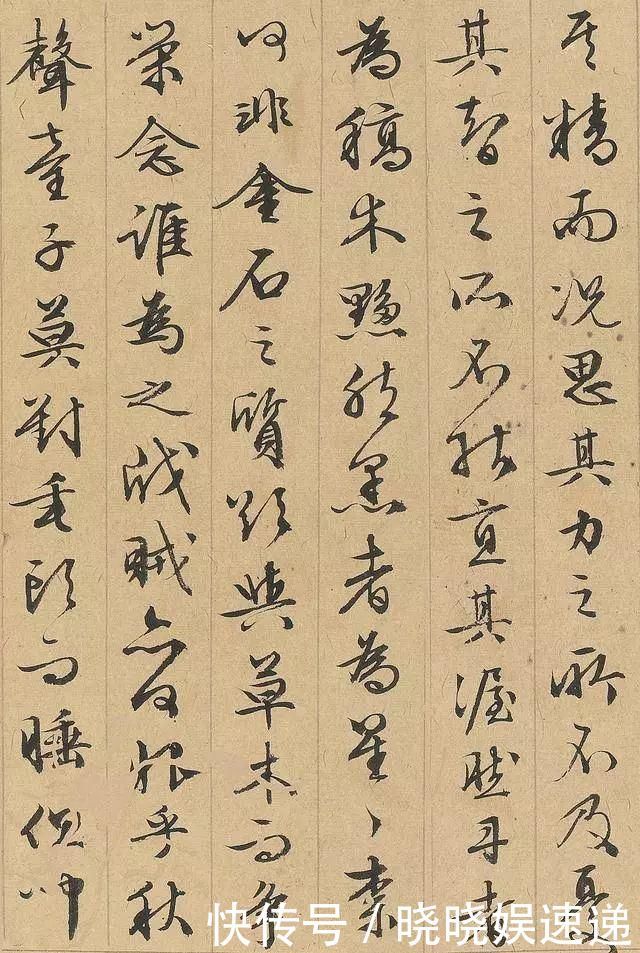 其精而況思其力之所不及憂
其智之所不能宜其渥然丹者
為稿木黟然黑者為星〻柰
何非金石之質欲與草木而争
榮念誰為之戕賊亦何恨乎秋
聲童子莫對垂頭而睡但聞
快传号/晓晓娱速递